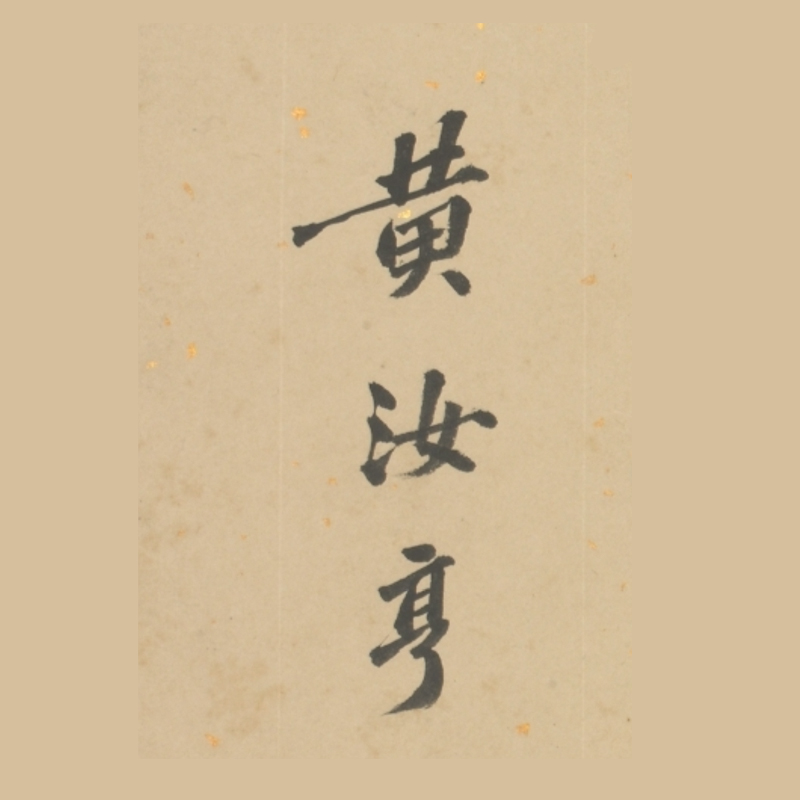 黄汝亨